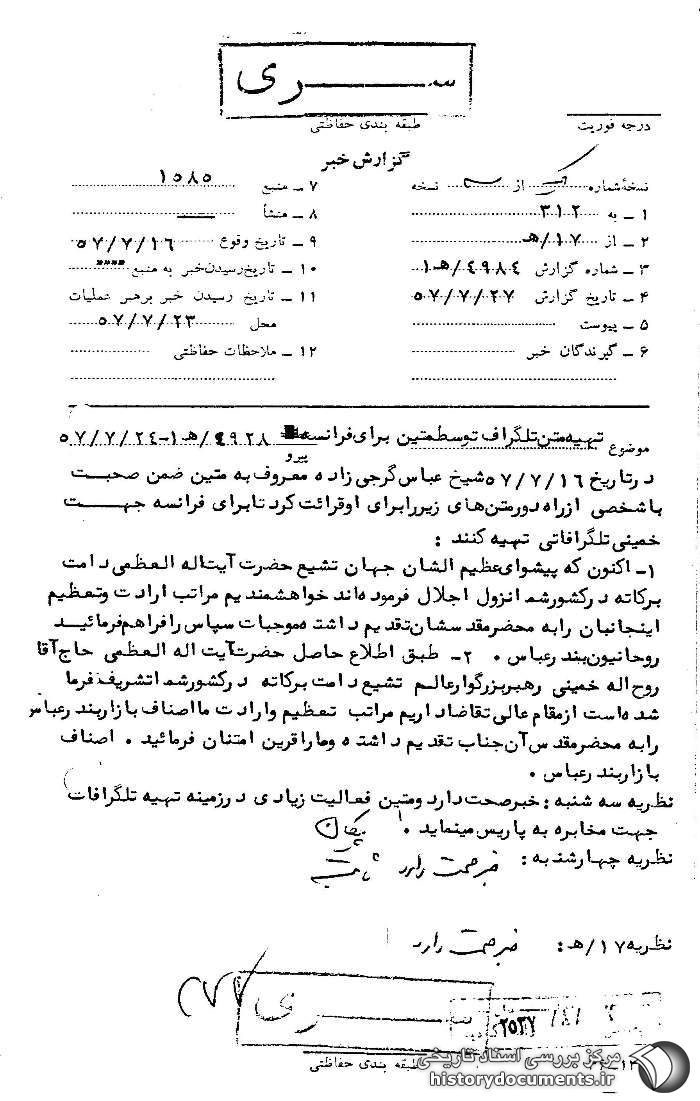 ســـری
طبقه بندی حفاظتی
درجه فوریت
گزارش خبر
نسخه شماره از نسخه
۱ ـ به ۳۱۲
۲ ـ از ۱۷/هـ
۳ ـ شماره گزارش ۴۹۸۴/هـ۱
۴ ـ تاریخ گزارش ۵۷/۷/۲۷
۵ ـ پیوست
۶ ـ گیرندگان خبر
۷ ـ منبع ۱۵۸۵
۸ ـ منشأ
۹ ـ تاریخ وقوع ۵۷/۷/۱۶
۱۰ ـ تاریخ رسیدن خبر به منبع
۱۱ ـ تاریخ رسیدن خبر برهبر عملیات
محل ۵۷/۷/۲۳
۱۲ ـ ملاحظات حفاظتی
موضوع تهیه متن تلگراف توسط متین برای فرانسه
پیرو ۴۹۲۸/هـ۱-۵۷/۷/۲۴
در تاریخ ۵۷/۷/۱۶ شیخ عباس گرجی زاده معروف به متین ضمن صحبت
با شخصی از راه دور متن های زیر را برای او قرائت کرد تا برای فرانسه جهت
خمینی تلگرافاتی تهیه کنند :
۱- اکنون که پیشوای عظیم الشان جهان تشیع حضرت آیت اله العظمی دامت
برکاته در کشور شما نزول اجلال فرموده اند خواهشمندیم مراتب ارادت و تعظیم
اینجانبان را به محضر مقدسشان تقدیم داشته موجبات سپاس را فراهم فرمائید
روحانیون بندرعباس . ۲- طبق اطلاع حاصل حضرت آیت اله العظمی حاج آقا
روح اله خمینی رهبر بزرگوار عالم تشیع دامت برکاته در کشور شما تشریف فرما
شده است از مقام عالی تقاضا داریم مراتب تعظیم و ارادت ما اصناف بازار بندرعباس
را به محضر مقدس آن جناب تقدیم داشته و ما را قرین امتنان فرمائید . اصناف
بازار بندرعباس .
نظریه سه شنبه : خبر صحت دارد و متین فعالیت زیادی در زمینه تهیه تلگرافات
جهت مخابره به پاریس مینماید .
نظریه چهارشنبه : خبر صحت دارد
نظریه ۱۷/هـ : خبر صحت دارد
ســـری
۲۵۳۷
طبقه بندی حفاظتی
مرکز بررسی اسناد تاریخی
historydocuments.ir